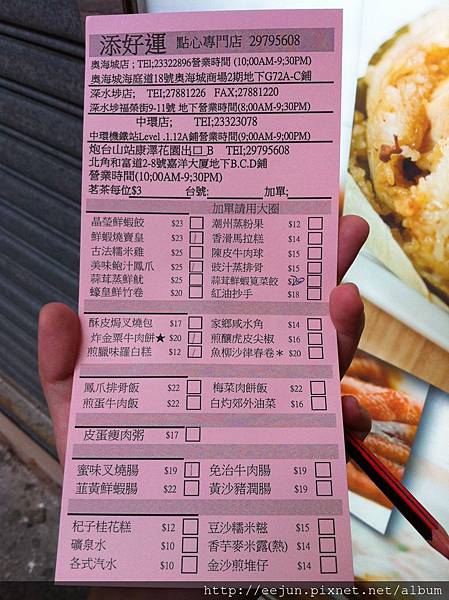 添好運 點心專門店 29795608
奧海城店 ; TEl;23322896營業時間 (10;00AM-9;30PM)
奧海城海庭道18號奧海城商場2期地下G72A-C鋪
深水埗店; TEL;27881226 FAX;27881220
深水埗福榮街9-11號 地下營業時間(8;00AM-9;30PM)
中環店; TEL;23323078
中環機鐵站Level .1.12A鋪營業時間(9;00AM-9;00PM)
炮台山站康澤花園出口 B TEl;29795608
北角和富道2-8號嘉洋大厦地下B.C.D鋪
營業時間(10;00AM-9;30PM)
茗茶每位$3 台號; 加單;
加單請用大圈
晶瑩鮮蝦餃 $23 潮州蒸粉果 $12
鮮蝦燒賣皇 $23 香滑馬拉糕 $14
古法糯米雞 $25 陳皮牛肉球 $15
美味鮑汁鳳爪 $25 豉汁蒸排骨 $15
蒜茸蒸鮮魷 $25 蒜茸鮮蝦莧菜餃
蠔皇鮮竹卷 $20 紅油抄手 $18
酥皮焗叉燒包 $17 家鄉咸水角 $14
炸金粟牛肉餅★ $20 煎釀虎皮尖椒 $16
煎臘味羅白糕 $12 魚柳沙律春卷＊ $20
鳳爪排骨飯 $22 梅菜肉餅飯 $22
煎蛋牛肉飯 $22 白灼郊外油菜 $16
皮蛋瘦肉粥 $17
蜜味叉燒腸 $19 免治牛肉腸 $19
韮黃鮮蝦腸 $22 黃沙豬潤腸 $19
杞子桂花糕 $12 豆沙糯米糍 $15
礦泉水 $10 香芋麥米露(熱) $14
各式汽水 $10 金沙煎堆仔 $14
http://eejun.pixnet.net/album